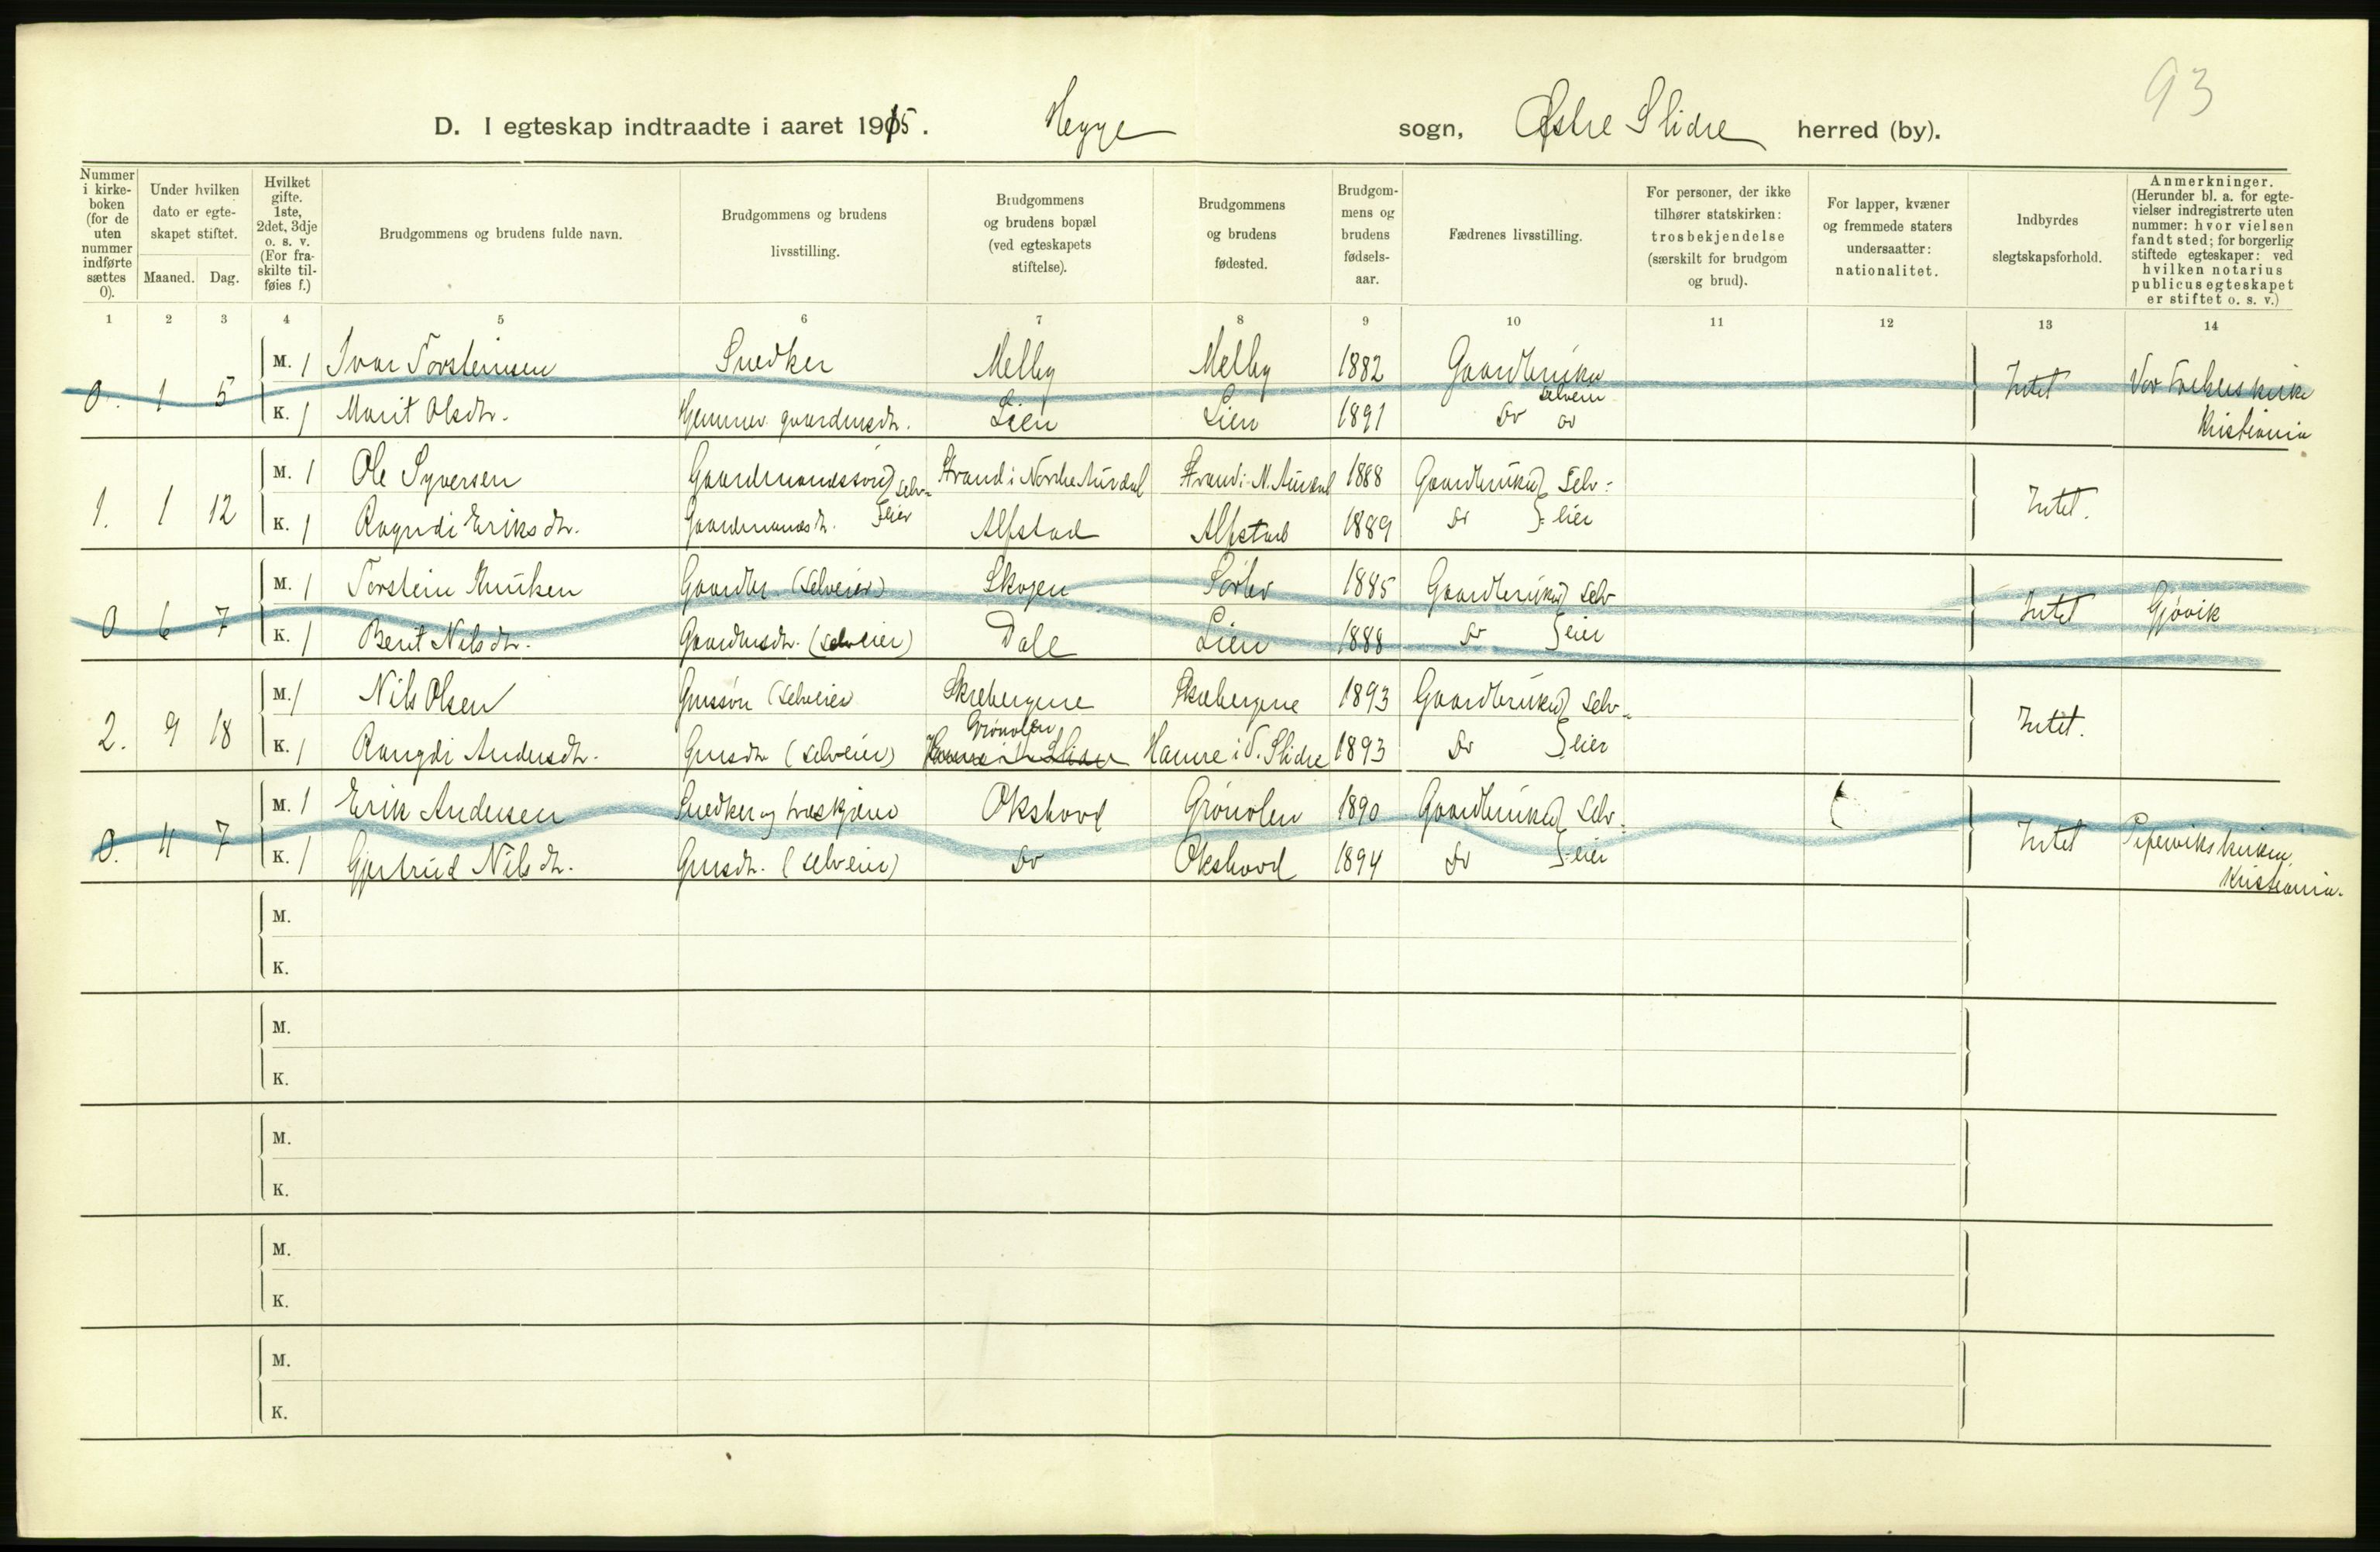 93
D. I egteskap indtraadte i aaret 1915. Hegge sogn, Østre Slidre herred (by).
Nummer i kirkeboken (for de uten nummer indførte sættes 0).
Under hvilken dato er egteskapet stiftet.
Maaned. Dag.
Hvilket gifte. 1ste, 2det, 3dje o. s. v. (For fraskilte tilføies f.)
Brudgommens og brudens fulde navn.
Brudgommens og brudens livsstilling.
Brudgommens og brudens bopæl (ved egteskapets stiftelse).
Brudgommens og brudens fødested.
Brudgommens og brudens fødselsaar.
Fædrenes livsstilling.
For personer, der ikke tilhører statskirken: trosbekjendelse (særskilt for brudgom og brud).
For lapper, kvæner og fremmede staters undersaatter: nationalitet.
Indbyrdes slegtskapsforhold.
Anmerkninger. (Herunder bl. a. for egtevielser indregistrerte uten nummer: hvor vielsen fandt sted; for borgerlig stiftede egteskaper: ved hvilken notarius publicus egteskapet er stiftet o. s. v.)
1 2 3 4 5 6 7 8 9 10 11 12 13 14
0. 1 5 M. 1 Ivar Torsteinsen Snedker Melby Melby 1882 Gaardbruker selveier Intet Vor Frelsers kirke
K. 1 Marit Olsdtr. Lien Lien 1891 do do Kristiania
1. 1 12 M. 1 Ole Syversen Gaardmandssøn selv- Strand i Nordre Aurdal Strand i N. Aurdal 1888 Gaardbruker selv- Intet.
K. 1 Ragndi Eriksdtr. Gaardmandsdtr. eier Alfstad Alfstad 1889 do eier
0 6 7 M. 1 Torstein Knutsen Gaardbr. (selveier) Skogen 1885 Gaardbruker selv Intet Gjøvik
K. 1 Berit Nilsdtr. Gaardmsdtr. (selveier) Dale Lien 1888 do eier
2. 9 18 M. 1 Nils Olsen Gmssøn (selveier Skrebergene Skrebergene 1893 Gaardbruker selv- Intet.
Grønolen
K. 1 Rangdi Andersdtr. Gmsdtr (selveier) Hamre i V. Slidre 1893 do eier
0. 11 7 M. 1 Erik Andersen Snedker og træskjærer Okshovd Grønolen 1890 Gaardbruker selv- Intet Piperviks kirken,
K. 1 Gjertrud Nilsdtr. Gmsdtr. (selveier) do Okshovd 1894 do eier Kristiania.
M.
K.
M.
K.
M.
K.
M.
K.
M.
K.